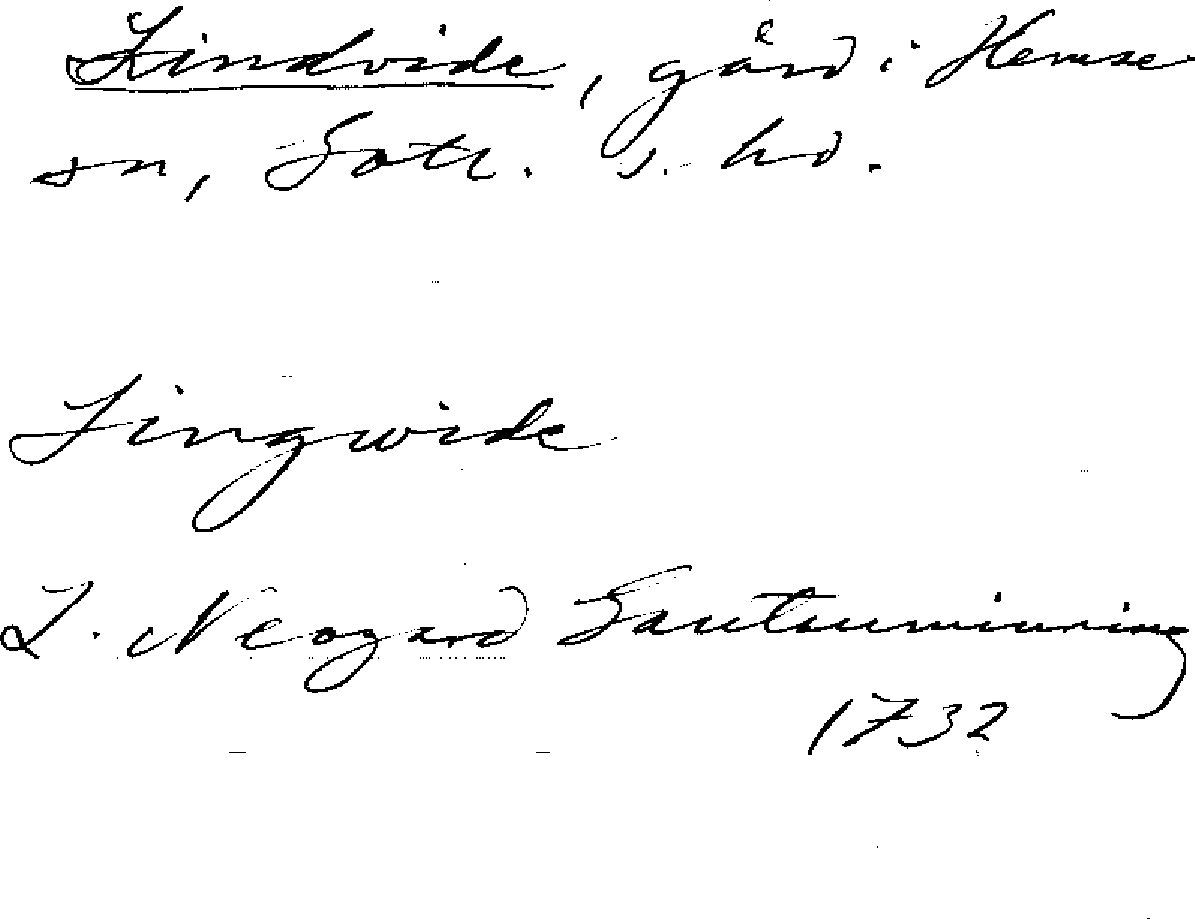 Lindvide, gård i Hemse
sn, Gotl. s. hd.
Lingwide
L. Neogard Gautauminning
1732